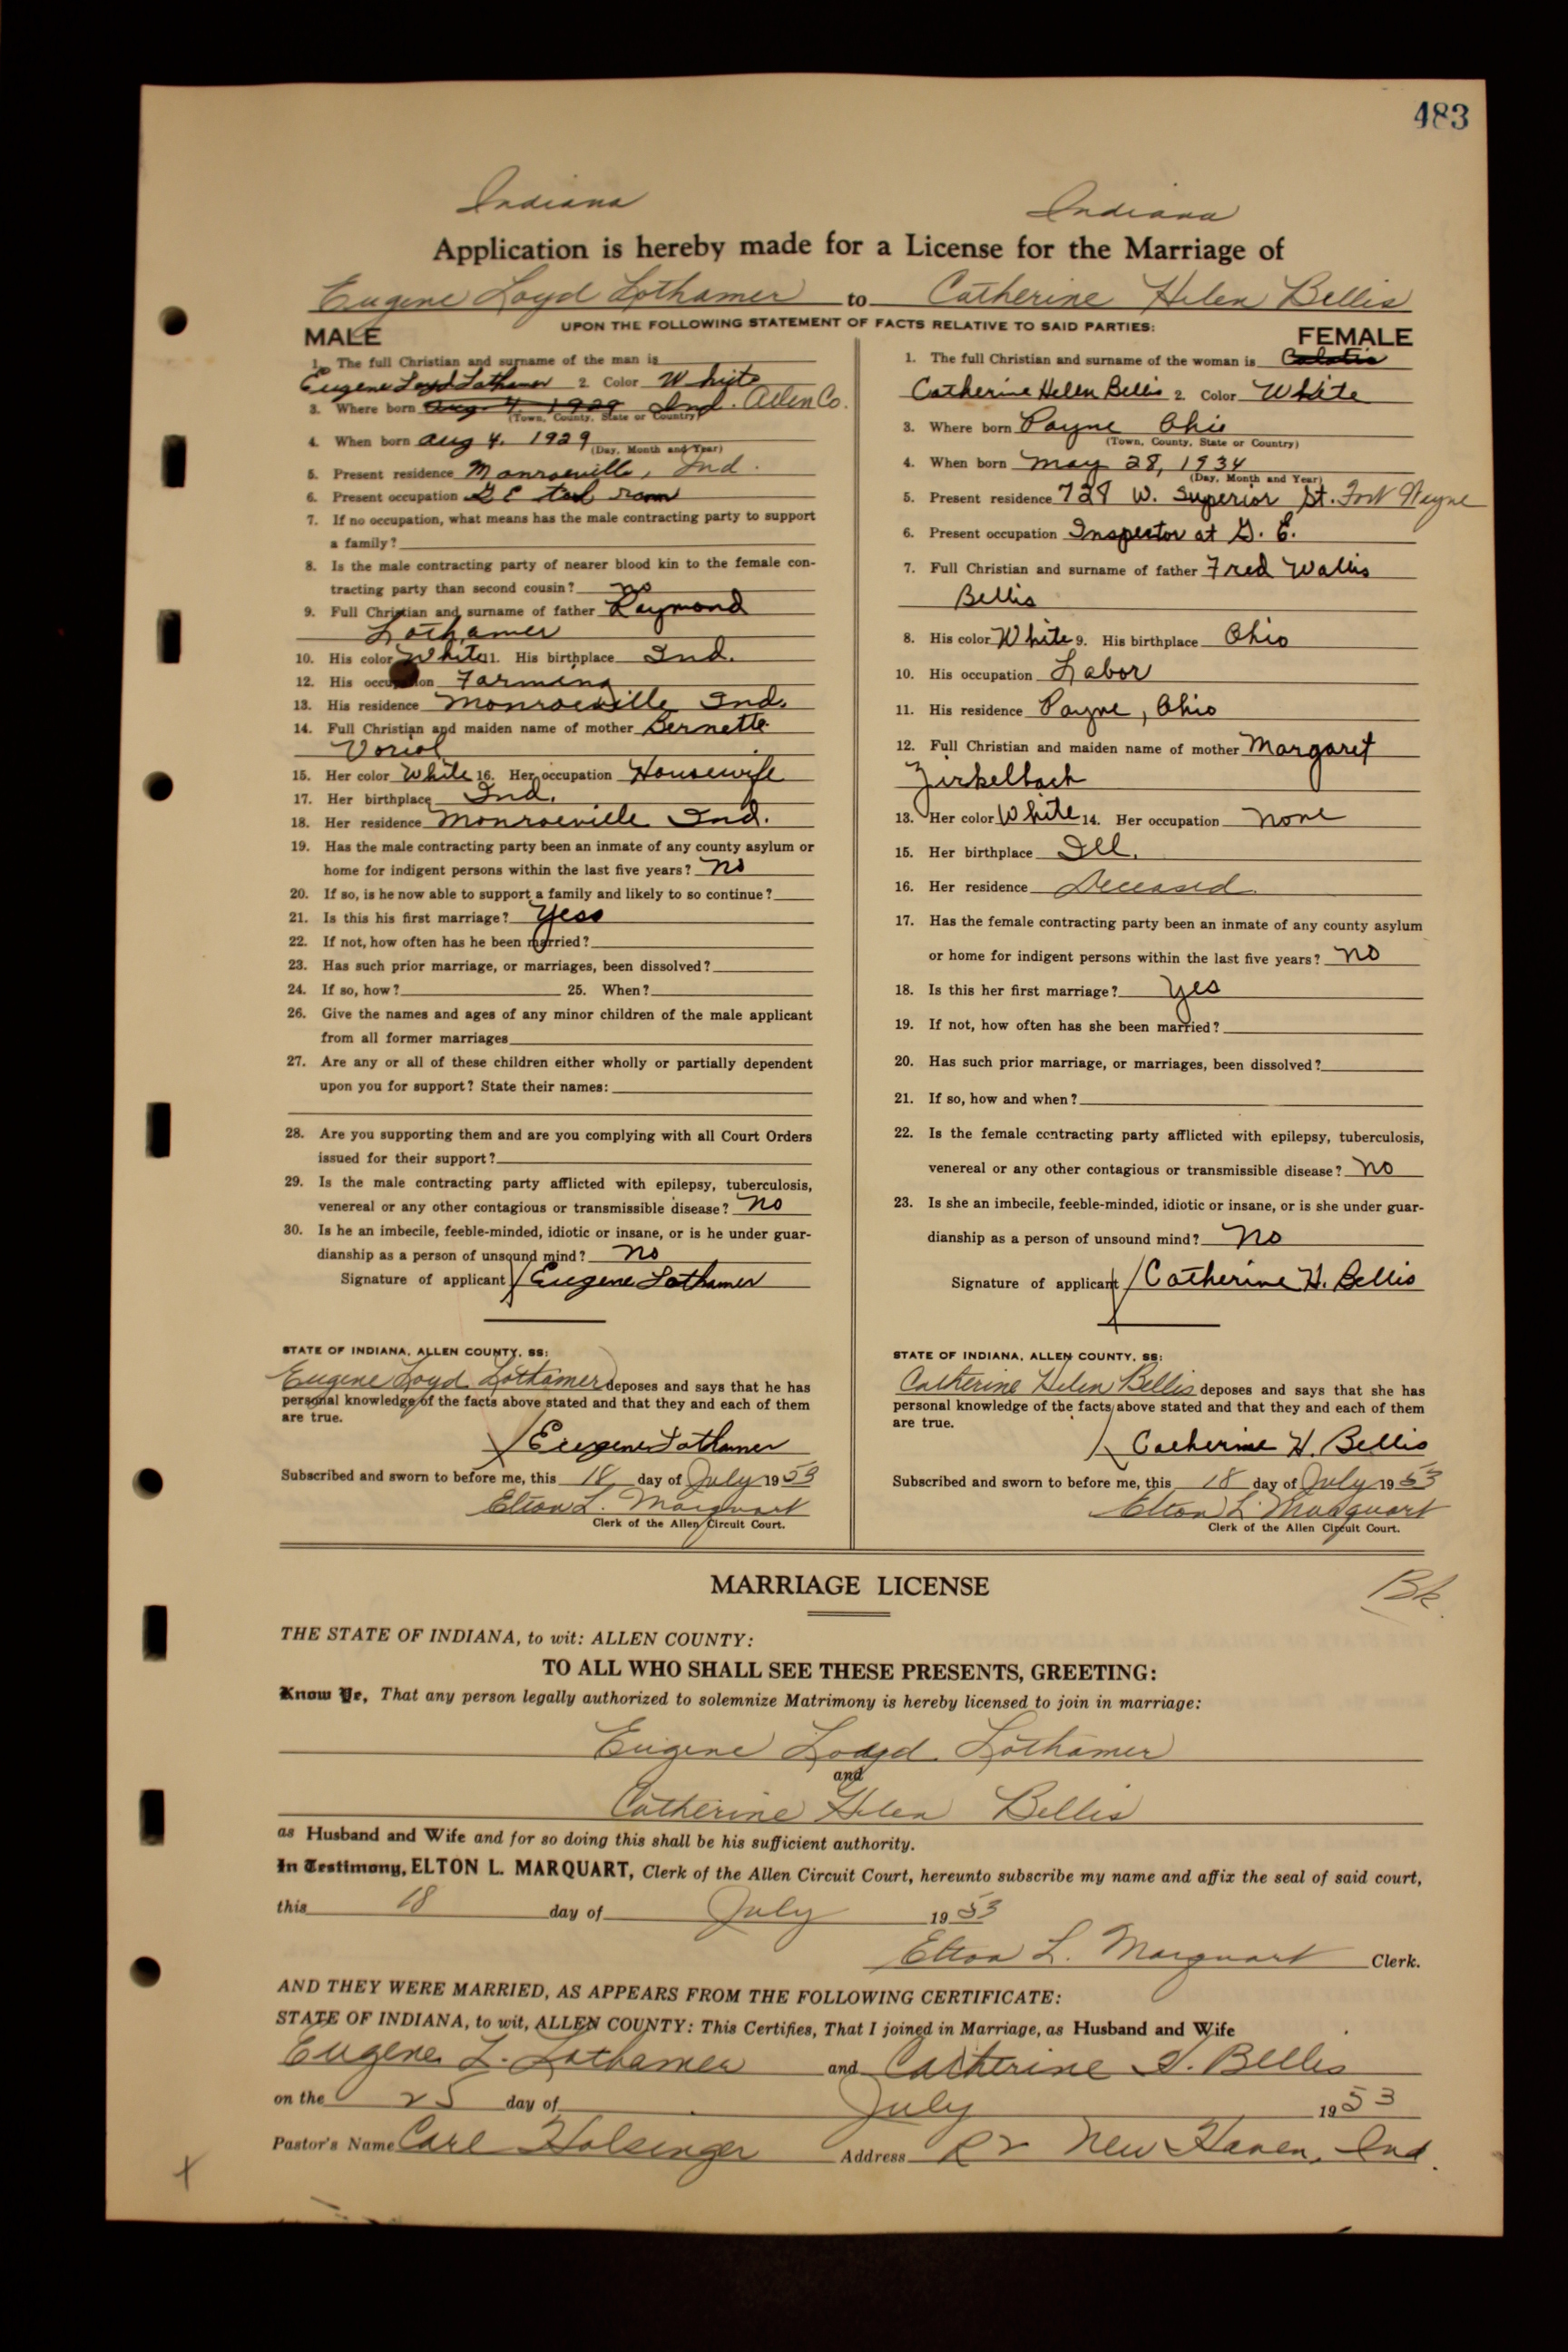 483
Indiana Indiana
Application is hereby made for a License for the Marriage of
Eugene Loyd Lothamer to Catherine Helen Bellis
UPON THE FOLLOWING STATEMENT OF FACTS RELATIVE TO SAID PARTIES:
MALE
1. The full Christian and surname of the man is
Eugene Loyd Lothamer 2. Color White
3. Where born Aug 4 1929 Ind. Allen Co.
(Town, County, State or Country)
4. When born Aug 4. 1929
(Day, Month and Year)
5. Present residence Monroeville, Ind.
6. Present occupation room
7. If no occupation, what means has the male contracting party to support
a family?
8. Is the male contracting party of nearer blood kin to the female con-
tracting party than second cousin? no
9. Full Christian and surname of father Raymond
Lothamer
10. His color White 11. His birthplace Ind.
12. His occupation Farming
13. His residence Monroeville Ind.
14. Full Christian and maiden name of mother Bernette
15. Her color White 16. Her occupation Housewife
17. Her birthplace Ind.
18. Her residence Monroeville Ind.
19. Has the male contracting party been an inmate of any county asylum or
home for indigent persons within the last five years? no
20. If so, is he now able to support a family and likely to so continue?
21. Is this his first marriage? Yess
22. If not, how often has he been married?
23. Has such prior marriage, or marriages, been dissolved?
24. If so, how? 25. When?
26. Give the names and ages of any minor children of the male applicant
from all former marriages
27. Are any or all of these children either wholly or partially dependent
upon you for support? State their names:
28. Are you supporting them and are you complying with all Court Orders
issued for their support?
29. Is the male contracting party afflicted with epilepsy, tuberculosis,
venereal or any other contagious or transmissible disease? no
30. Is he an imbecile, feeble-minded, idiotic or insane, or is he under guar-
dianship as a person of unsound mind? no
Signature of applicant Eugene Lothamer
STATE OF INDIANA, ALLEN COUNTY, SS:
Eugene Loyd Lothamer deposes and says that he has
personal knowledge of the facts above stated and that they and each of them
are true.
Eugene Lothamer
Subscribed and sworn to before me, this 18 day of July 1953
Elton L. Marquart
Clerk of the Allen Circuit Court.
FEMALE
1. The full Christian and surname of the woman is
Catherine Helen Bellis 2. Color White
3. Where born Payne Ohio
(Town, County, State or Country)
4. When born May 28, 1934
(Day, Month and Year)
5. Present residence 728 W. Superior St. Fort Wayne
6. Present occupation Inspector at G. E.
7. Full Christian and surname of father Fred Wallis
Bellis
8. His color White 9. His birthplace Ohio
10. His occupation Labor
11. His residence Payne, Ohio
12. Full Christian and maiden name of mother Margaret
Zirkelbach
13. Her color White 14. Her occupation none
15. Her birthplace Ill.
16. Her residence Deceased
17. Has the female contracting party been an inmate of any county asylum
or home for indigent persons within the last five years? no
18. Is this her first marriage? yes
19. If not, how often has she been married?
20. Has such prior marriage, or marriages, been dissolved?
21. If so, how and when?
22. Is the female contracting party afflicted with epilepsy, tuberculosis,
venereal or any other contagious or transmissible disease? no
23. Is she an imbecile, feeble-minded, idiotic or insane, or is she under guar-
dianship as a person of unsound mind? no
Signature of applicant Catherine H. Bellis
STATE OF INDIANA, ALLEN COUNTY, SS:
Catherine Helen Bellis deposes and says that she has
personal knowledge of the facts above stated and that they and each of them
are true.
Catherine H. Bellis
Subscribed and sworn to before me, this 18 day of July 1953
Elton L. Marquart
Clerk of the Allen Circuit Court.
MARRIAGE LICENSE
Bk.
THE STATE OF INDIANA, to wit: ALLEN COUNTY:
TO ALL WHO SHALL SEE THESE PRESENTS, GREETING:
Know Ye, That any person legally authorized to solemnize Matrimony is hereby licensed to join in marriage:
Eugene Loyd Lothamer
and
Catherine Helen Bellis
as Husband and Wife and for so doing this shall be his sufficient authority.
In Testimony, ELTON L. MARQUART, Clerk of the Allen Circuit Court, hereunto subscribe my name and affix the seal of said court,
this 18 day of July 1953
Elton L. Marquart Clerk.
AND THEY WERE MARRIED, AS APPEARS FROM THE FOLLOWING CERTIFICATE:
STATE OF INDIANA, to wit, ALLEN COUNTY: This Certifies, That I joined in Marriage, as Husband and Wife
Eugene L. Lothamer and Catherine H. Bellis
on the 25 day of July 1953
Pastor's Name Carl Holsinger Address R 2 New Haven, Ind.
x